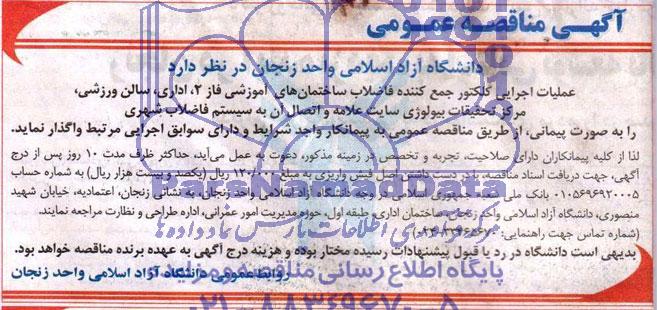 آگهی مناقصه عمومی
دانشگاه آزاد اسلامی واحد زنجان در نظر دارد
عملیات اجرایی کلکتور جمع کننده فاضلاب ساختمان‌های آموزشی فاز ۲، اداری، سالن ورزشی،
مرکز تحقیقات بیولوژی سایت علامه و اتصال آن به سیستم فاضلاب شهری
را به صورت پیمانی، از طریق مناقصه عمومی به پیمانکار واحد شرایط و دارای سوابق اجرایی مرتبط واگذار نماید.
لذا از کلیه پیمانکاران دارای صلاحیت، تجربه و تخصص در زمینه مذکور، دعوت به عمل می‌آید، حداکثر ظرف مدت ۱۰ روز پس از درج
آگهی، جهت دریافت اسناد مناقصه، با در دست داشتن اصل فیش واریزی به مبلغ ۱۲۰/۰۰۰ ریال (یکصد و بیست هزار ریال) به شماره حساب
۰۱۰۵۶۹۶۹۲۰۰۰۵ بانک ملی شعبه جمهوری اسلامی در وجه دانشگاه آزاد اسلامی واحد زنجان، به نشانی زنجان، اعتمادیه، خیابان شهید
منصوری، دانشگاه آزاد اسلامی واحد زنجان، ساختمان اداری، طبقه اول، حوزه مدیریت امور عمرانی، اداره طراحی و نظارت مراجعه نمایند.
(شماره تماس جهت راهنمایی:
بدیهی است دانشگاه در رد یا قبول پیشنهادات رسیده مختار بوده و هزینه درج آگهی به عهده برنده مناقصه خواهد بود.
روابط عمومی دانشگاه آزاد اسلامی واحد زنجان
ParsNamadData
پایگاه اطلاع رسانی مناقصه و مزایده
۰۲۱-۸۸۳۴۹۶۷۰-۵